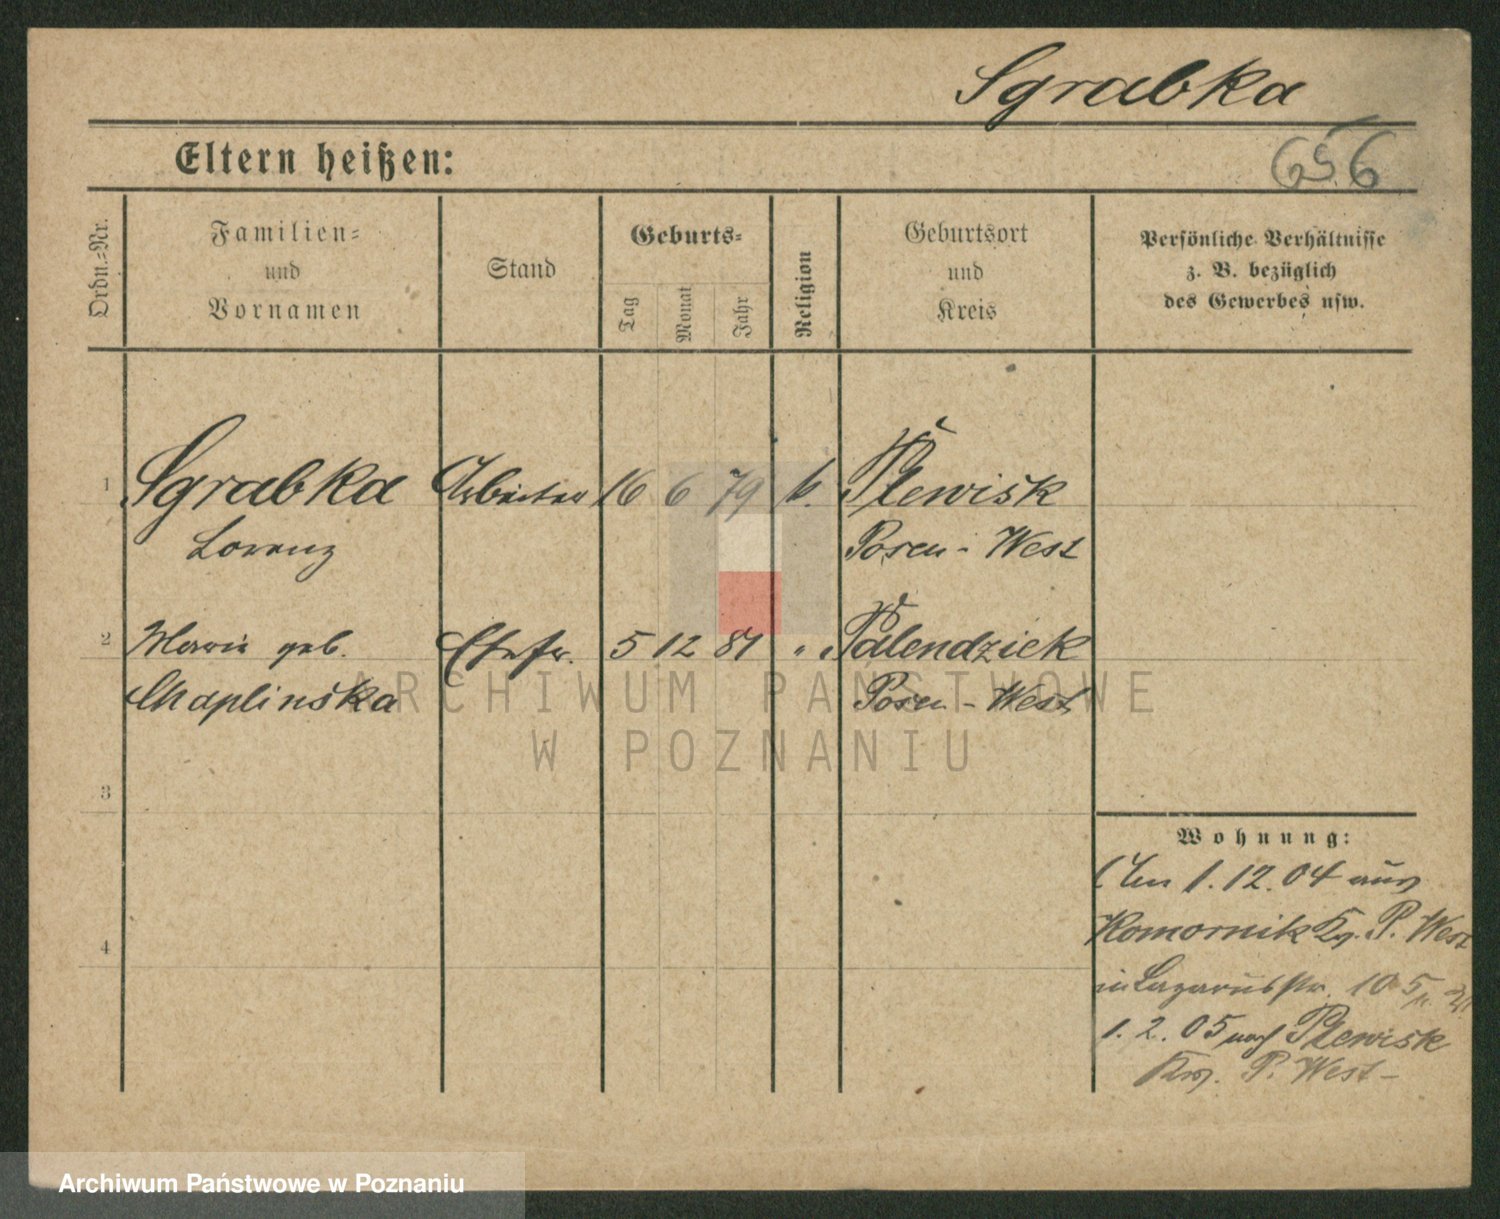 Sgrabka
Eltern heißen:
656
Ordn.-Nr.
Familien- und Vornamen
Stand
Geburts-
Tag
Monat
Jahr
Religion
Geburtsort und Kreis
Persönliche Verhältnisse
z. B. bezüglich
des Gewerbes usw.
1 Sgrabka Arbeiter 16 6 79 k. Plewisk
Lorenz Posen - West
2 Marie geb. Ehefr. 5 12 81 " Palendziek
Chaplinska Posen - West
3
4
Wohnung:
Am 1. 12. 04 aus
Komornik Kr. P. West
in Lazarusstr. 10
1. 2. 05 nach Plewisk
Krs. P. West -
ARCHIWUM PAŃSTWOWE
W POZNANIU
Archiwum Państwowe w Poznaniu